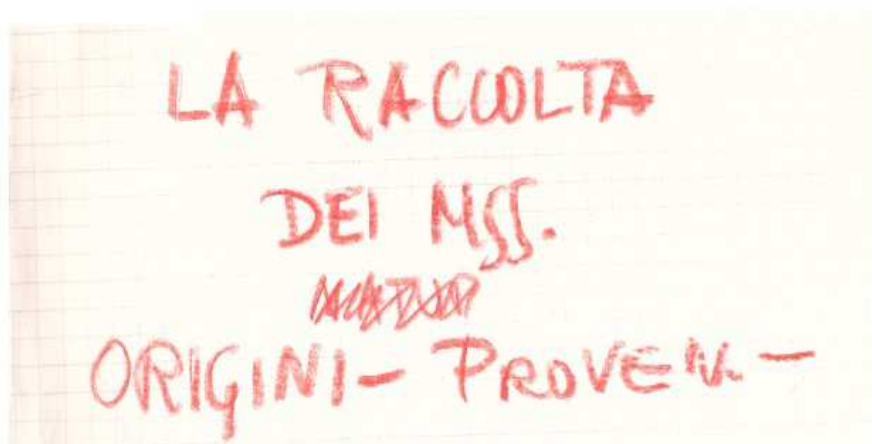 LA RACCOLTA
DEI MSS.
ORIGINI - PROVEN. -